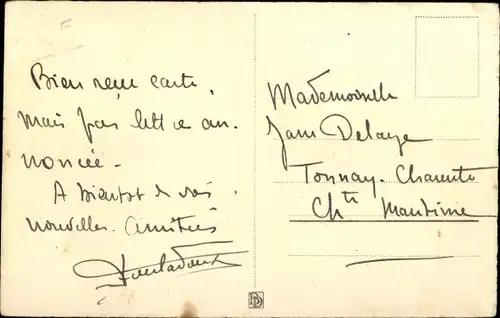 Bien reçu carte,
mais pas lettre an-
noncée -
A bientôt de vos
nouvelles. Amitiés
Mademoiselle
Jane Delaye
Tonnay-Charente
Ch te Maritime